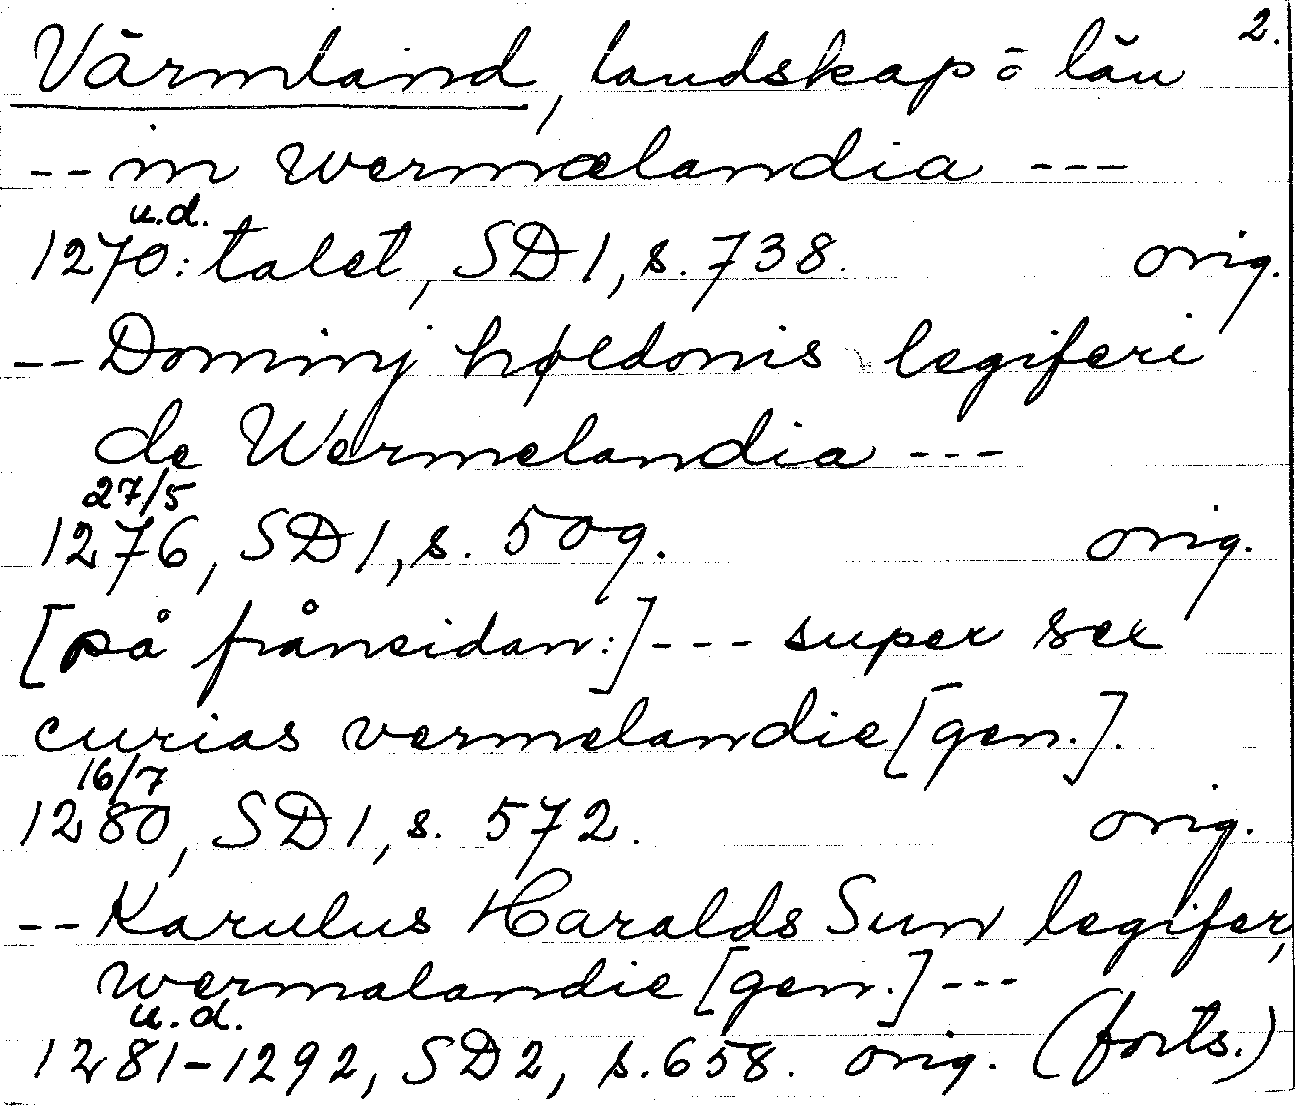 2.
Värmland, landskap o län
-- in wermœlandia ---
u.d.
1270: talet, SD1, s. 738. orig.
-- Dominj høldonis legiferi
de Wermelandia ---
27/5
1276, SD1, s. 509. orig.
[på frånsidan:] --- super sex
curias vermelandie [gen.].
16/7
1280, SD1, s. 572. orig.
-- Karulus Haralds Sun legifer,
wermalandie [gen.] ---
u.d.
1281-1292, SD2, s. 658. orig. (forts.)